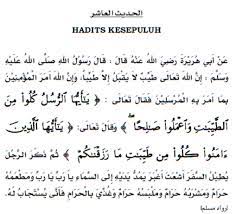 الحديث العاشر
HADITS KESEPULUH
عَنْ أَبِي هُرَيْرَةَ رَضِيَ اللهُ عَنْهُ قَالَ : قَالَ رَسُوْلُ اللهِ صَلَّى اللهُ عَلَيْهِ
وَسَلَّمَ : إِنَّ اللهَ تَعَالَى طَيِّبٌ لاَ يَقْبَلُ إِلاَّ طَيِّباً، وَإِنَّ اللهَ أَمَرَ الْمُؤْمِنِيْنَ
بِمَا أَمَرَ بِهِ الْمُرْسَلِيْنَ فَقَالَ تَعَالَى : ﴿ يَٰٓأَيُّهَا ٱلرُّسُلُ كُلُوا۟ مِنَ
ٱلطَّيِّبَٰتِ وَٱعْمَلُوا۟ صَٰلِحًا ﴾ وَقَالَ تَعَالَى : ﴿ يَٰٓأَيُّهَا ٱلَّذِينَ
ءَامَنُوا۟ كُلُوا۟ مِن طَيِّبَٰتِ مَا رَزَقْنَٰكُمْ ﴾ ثُمَّ ذَكَرَ الرَّجُلَ
يُطِيْلُ السَّفَرَ أَشْعَثَ أَغْبَرَ يَمُدُّ يَدَيْهِ إِلَى السَّمَاءِ يَا رَبِّ يَا رَبِّ وَمَطْعَمُهُ
حَرَامٌ وَمَشْرَبُهُ حَرَامٌ وَمَلْبَسُهُ حَرَامٌ وَغُذِّيَ بِالْحَرَامِ فَأَنَّى يُسْتَجَابُ لَهُ.
[رواه مسلم]